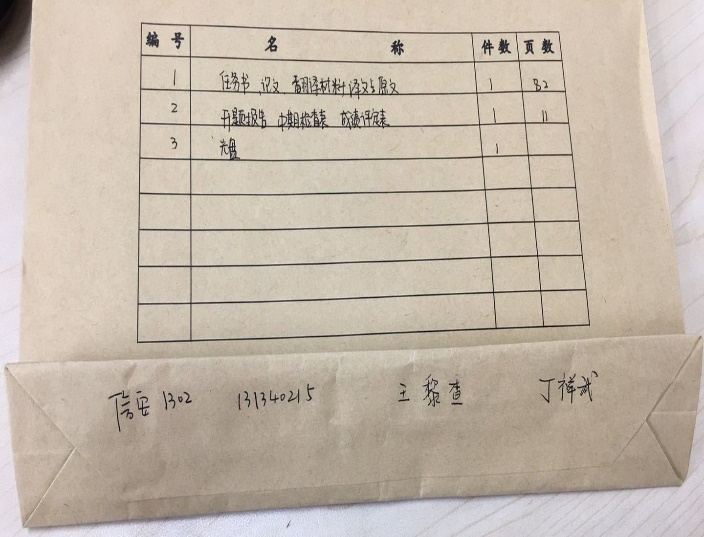 编号 名称 件数 页数
1 任务书 论文 翻译材料译文与原文 1 82
2 开题报告 中期检查表 成绩评定表 1 11
3 光盘 1
信安1302 131340215 王黎查 丁祥武